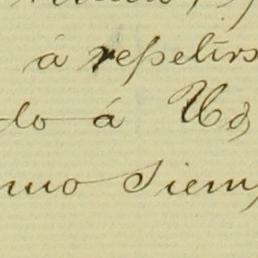 á repetirs
do á Vd,
mo siem